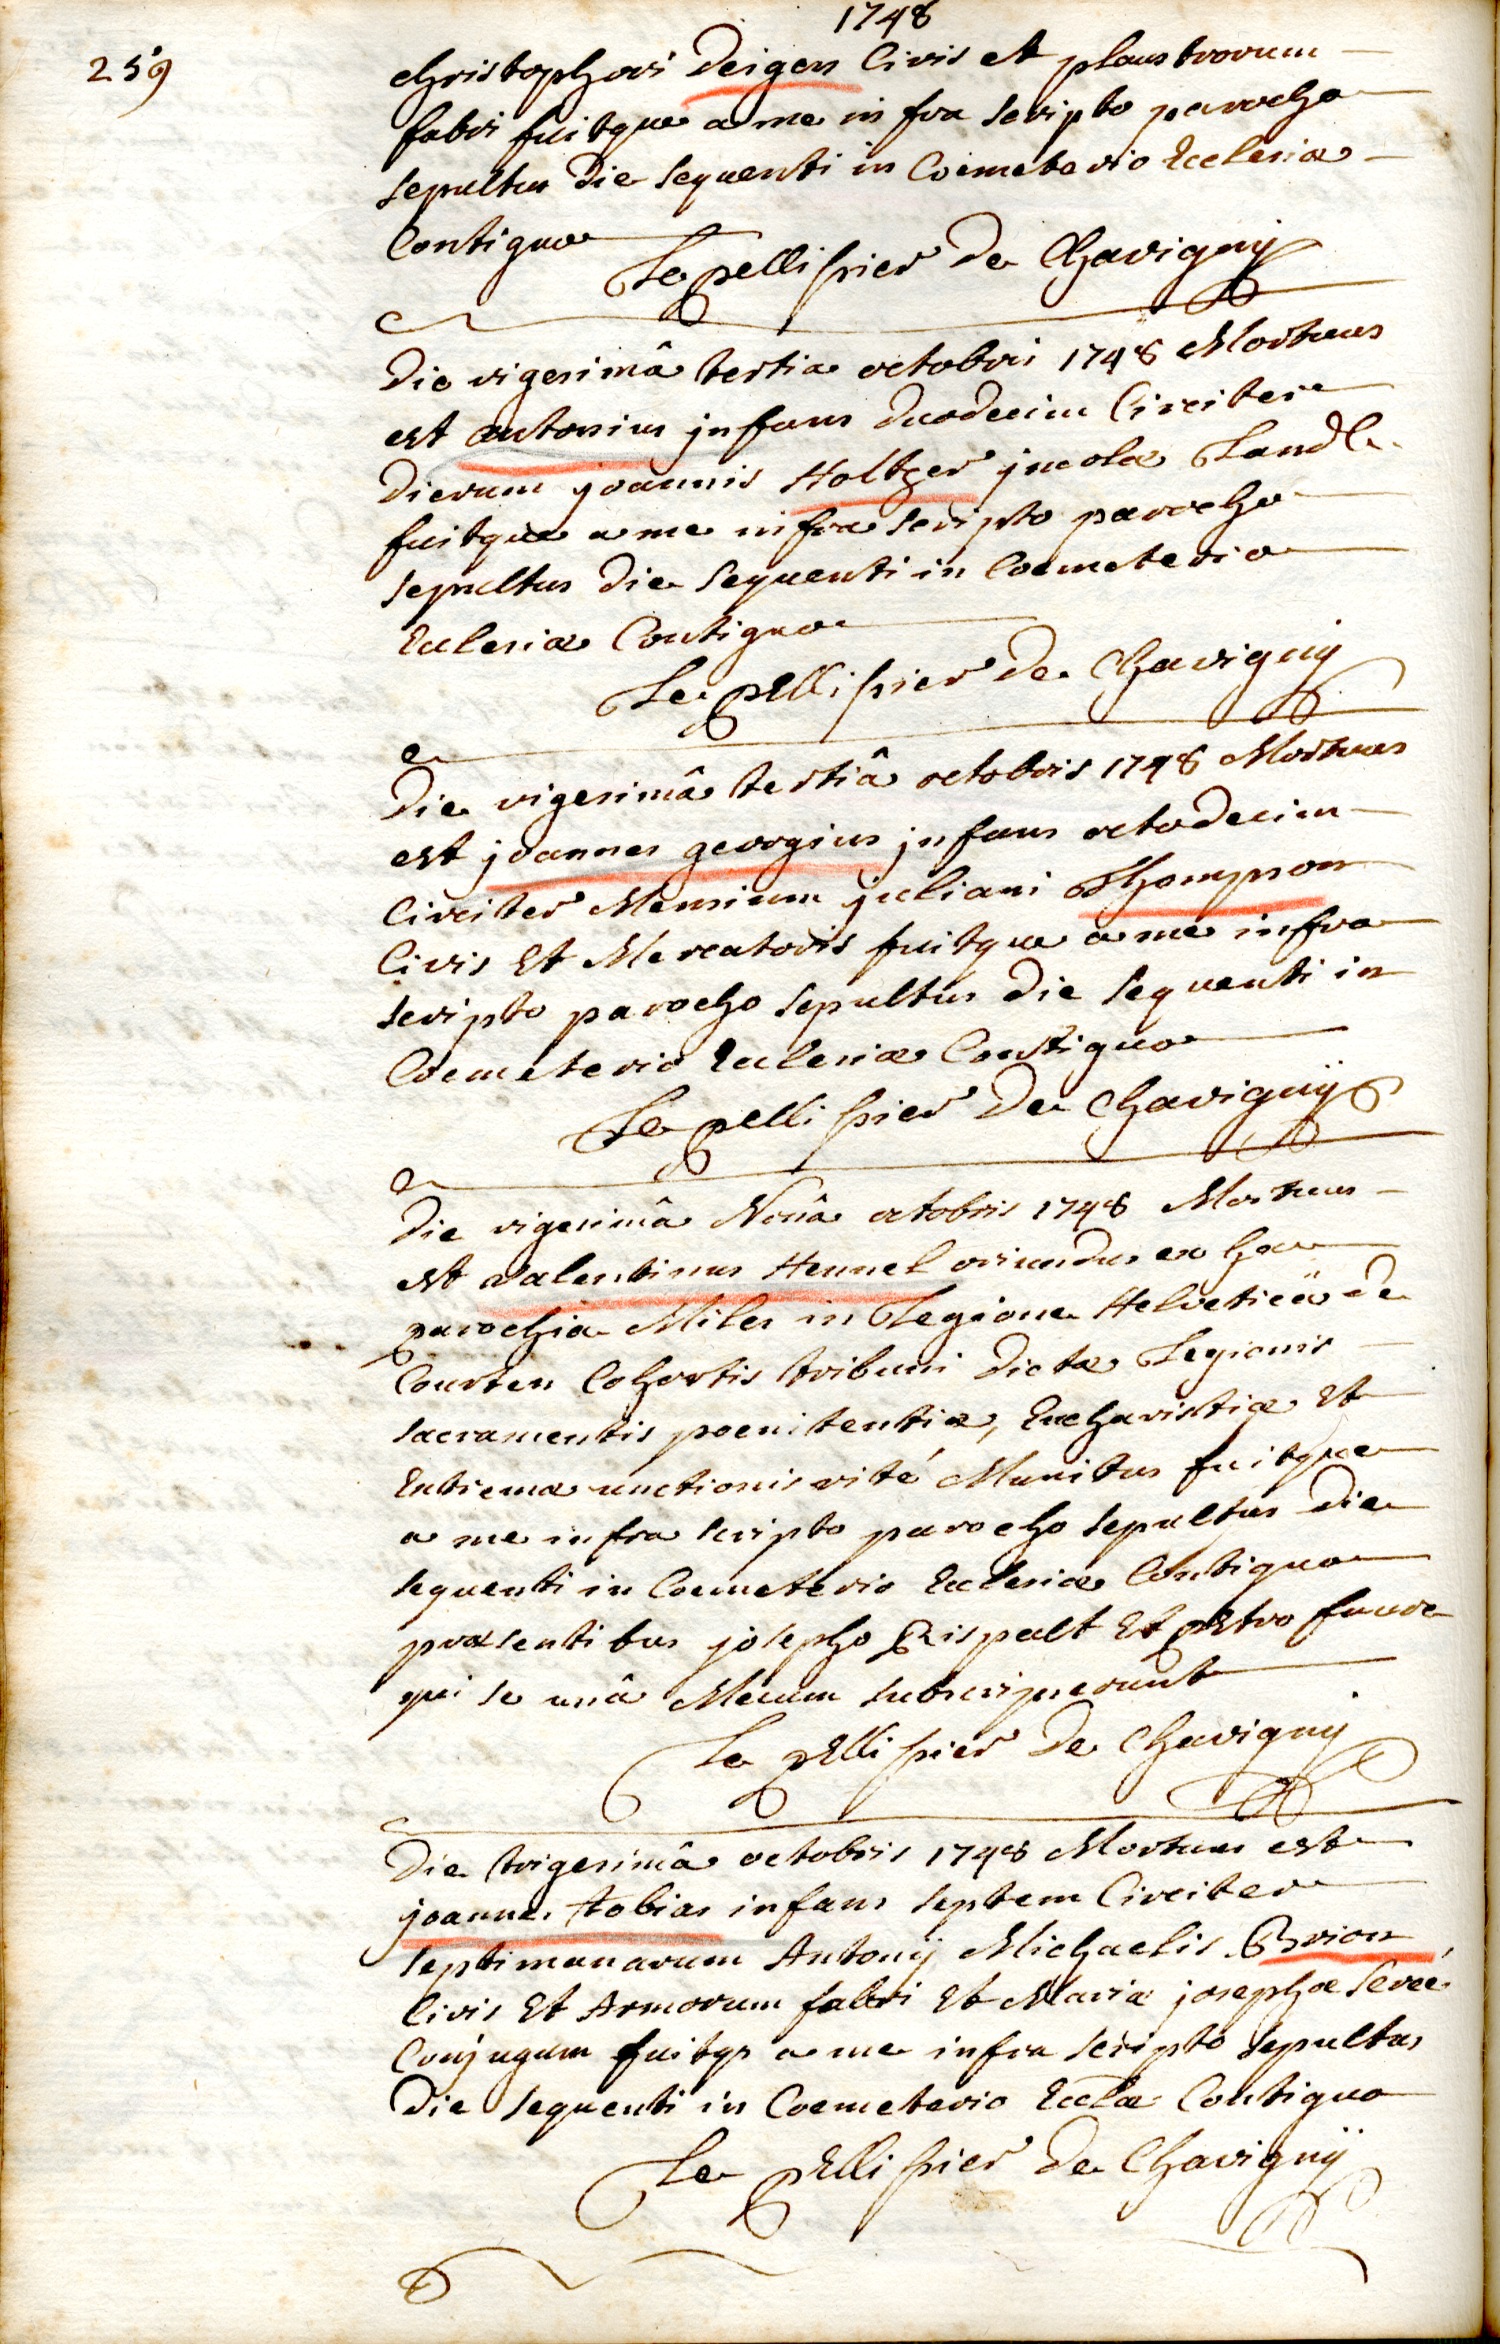 1748
259
christophori Deigen Civis et plaustrorum
fabri fuitque a me infra scripto parocho
sepultus die sequenti in Coemeterio Ecclesiæ
Contiguo
Le pellissier De Chavigny
Die vigesimâ tertia octobris 1748 Mortuus
est antonius jnfans duodecim Circiter
Dierum joannis Holtzer jncolæ Land
fuitque a me infra scripto parocho
sepultus die sequenti in Coemeterio
Ecclesiæ Contiguo
Le pellissier De Chavigny
Die vigesimâ tertiâ octobris 1748 Mortuus
est joannes georgius jnfans octodecim
Circiter Mensium juliani Thompson
Civis Et Mercatoris fuitque a me infra
scripto parocho sepultus die sequenti in
Coemeterio Ecclesiæ Contiguo
Le pellissier De Chavigny
Die vigesimâ Nonâ octobris 1748 Mortuus
est valentinus Hennel oriundus ex hac
parochia Miles in Legione Helveticâ de
Courten Cohortis tribuni dictæ Legionis
sacramentis poenitentiæ, Eucharistiæ Et
Extremæ unctionis rité Munitus fuitque
a me infra scripto parocho sepultus die
sequenti in Coemeterio Ecclesiæ Contiguo
præsentibus josepho Rispalt Et pEtro faure
qui se unâ Mecum subscripserunt
Le pEllissier De Chavigny
Die trigesimâ octobris 1748 Mortuus est
joannes tobias infans septem Circiter
septimanarum Antonij Michaelis Brion
Civis Et Armorum fabri Et Mariæ josephæ
Conjugum fuitqs a me infra scripto sepultus
Die sequenti in Coemeterio Eccłæ Contiguo
Le pEllissier De Chavigny